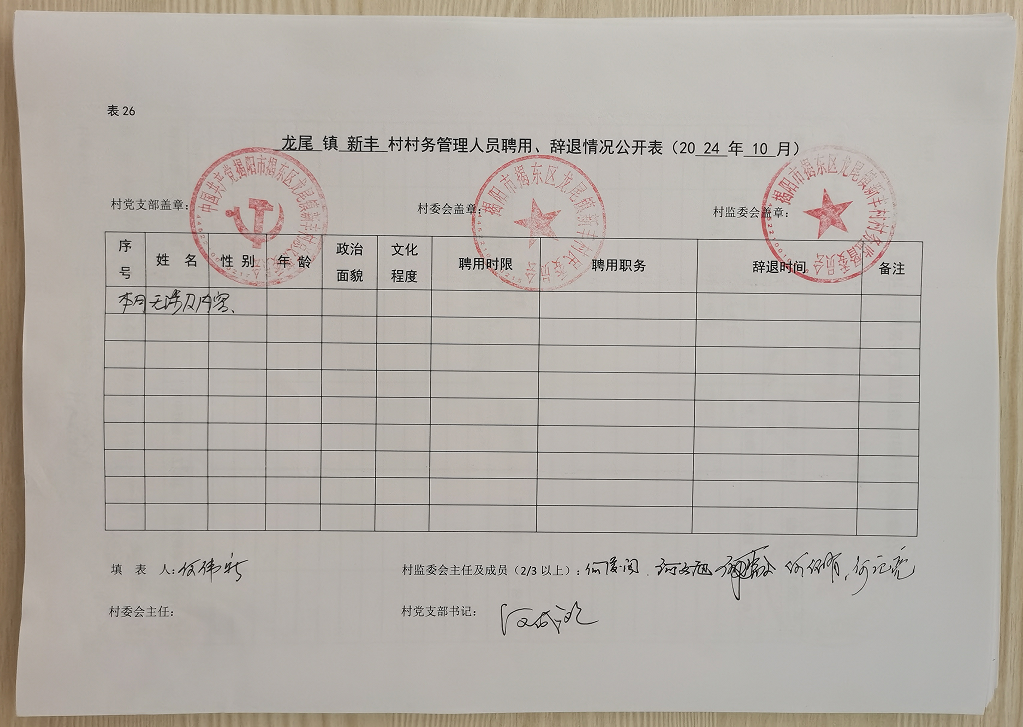 表 26
龙尾 镇 新丰 村村务管理人员聘用、辞退情况公开表（20 24 年 10 月）
村党支部盖章： 村委会盖章： 村监委会盖章：
中国共产党揭阳市揭东区龙尾镇新丰村
揭阳市揭东区龙尾镇新丰村
揭阳市揭东区龙尾镇新丰村村务监督委员会
序号 姓 名 性 别 年 龄 政治面貌 文化程度 聘用时限 聘用职务 辞退时间 备注
本月无涉及内容、
填 表 人： 何伟 村监委会主任及成员（2/3 以上）：
村委会主任： 村党支部书记：